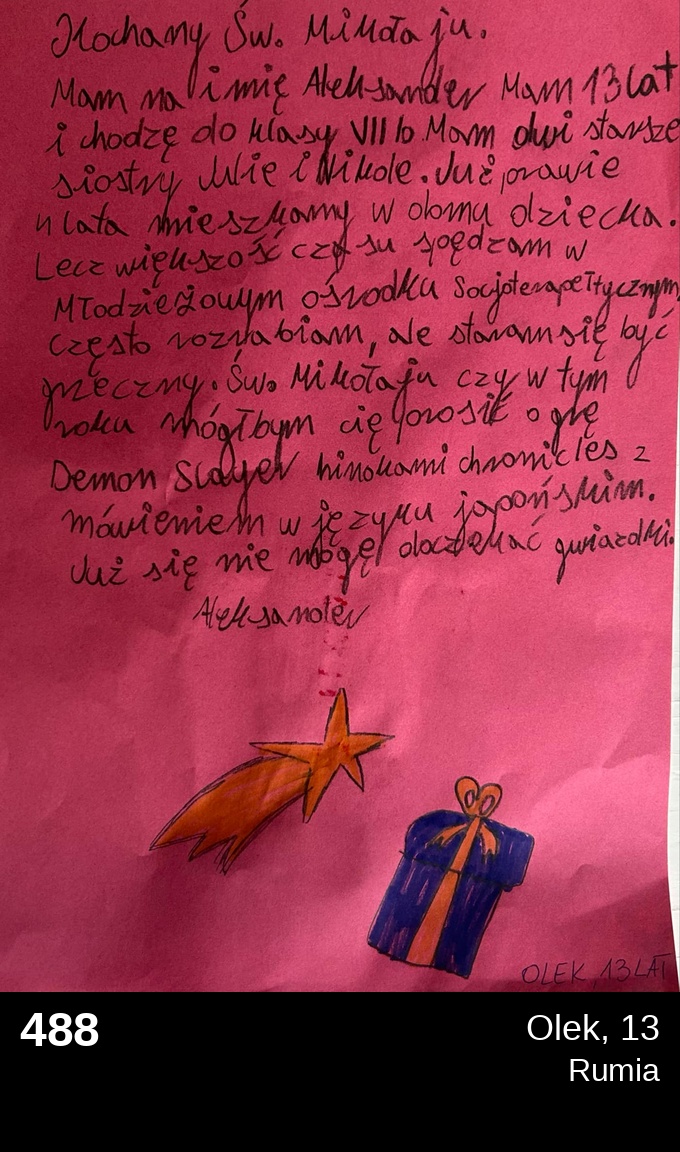 Kochany Św. Mikołaju.
Mam na imię Aleksander Mam 13 lat
i chodzę do klasy VII b. Mam dwi starsze
siostry Julię i Nikole. Już prawie
4 lata mieszkamy w domu dziecka.
Lecz większość czasu spędzam w
Młodzieżowym ośrodku Socjoterapełtycznym,
często rozrabiam, ale staram się być
grzeczny. Św. Mikołaju czy w tym
roku mógłbym cię prosić o grę
Demon Slayer hinokami chronicles z
mówieniem w języku japońskim.
Już się nie mogę doczekać gwiazdki.
Aleksander
OLEK, 13 LAT
488
Olek, 13
Rumia